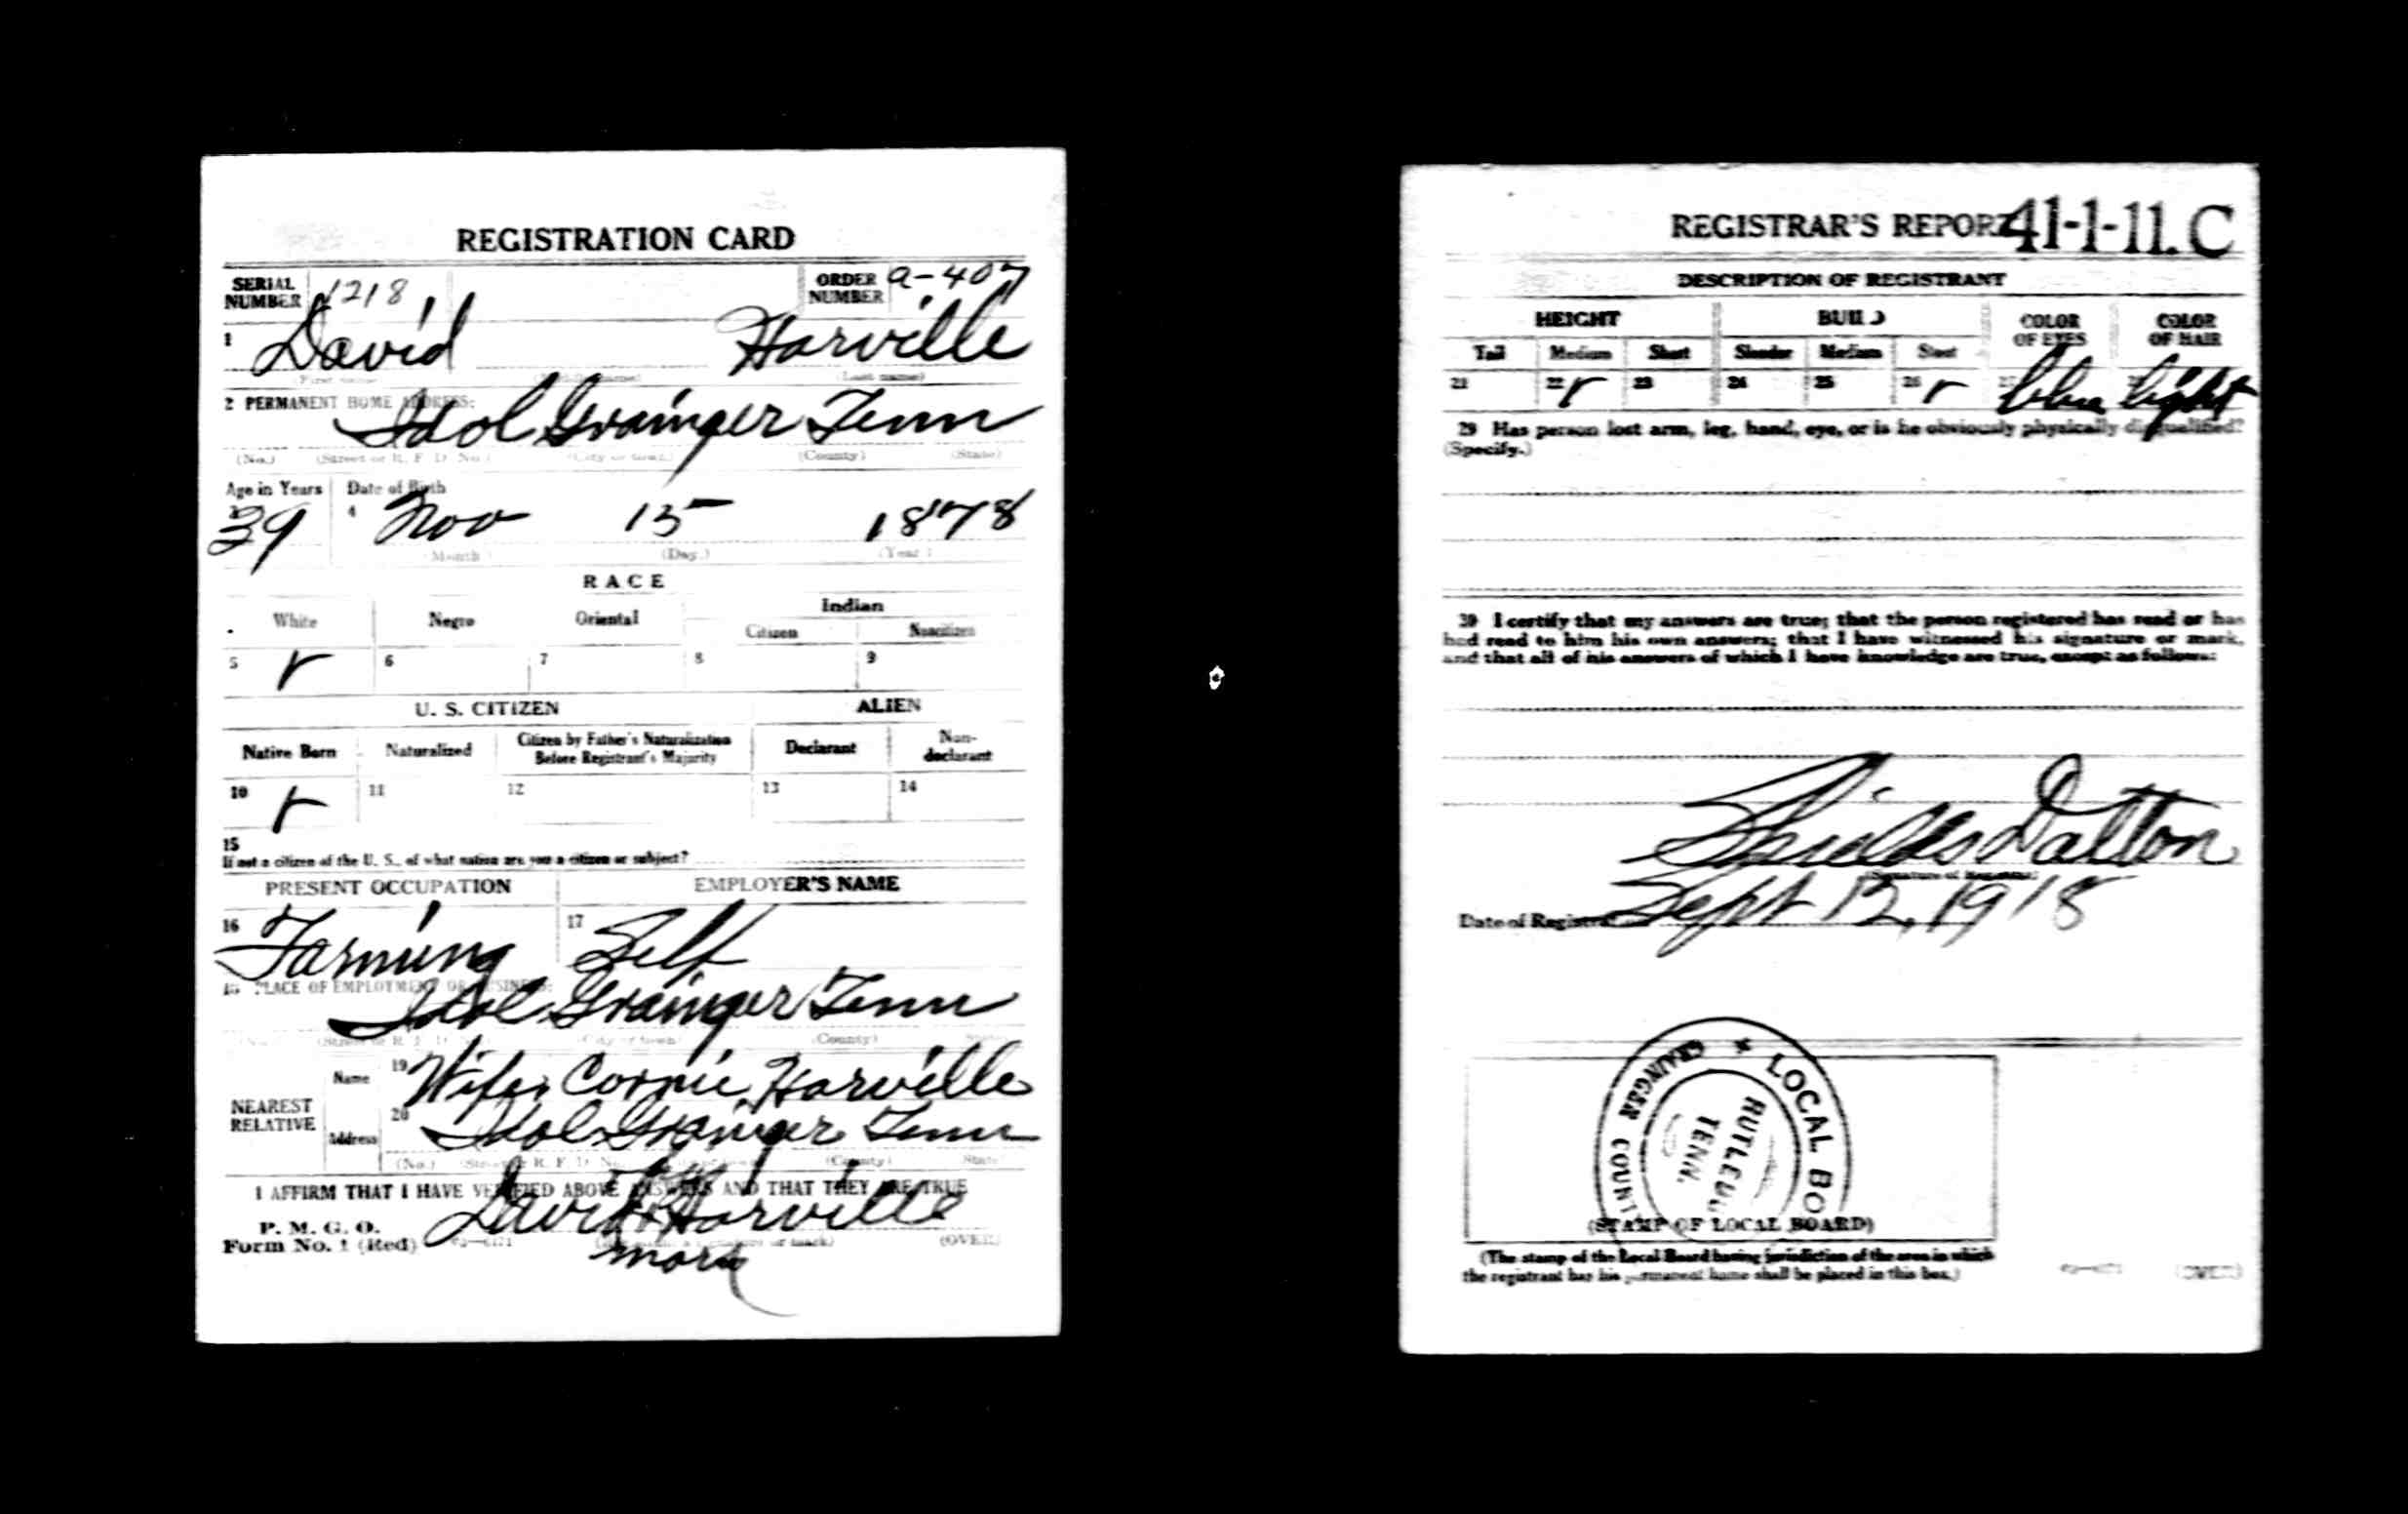 REGISTRATION CARD
SERIAL NUMBER 1218 ORDER NUMBER a-407
1 David Harville
(First name) (Middle name) (Last name)
2 PERMANENT HOME ADDRESS:
Idol Grainger Tenn
(No.) (Street or R. F. D. No.) (City or town.) (County) (State)
Age in Years Date of Birth
39 4 Nov 15 1878
(Month) (Day.) (Year)
RACE
White Negro Oriental Indian
Citizen Noncitizen
5 6 7 8 9
U. S. CITIZEN ALIEN
Native Born Naturalized Citizen by Father's Naturalization Before Registrant's Majority Declarant Non-declarant
10 11 12 13 14
15
If not a citizen of the U. S., of what nation are you a citizen or subject?
PRESENT OCCUPATION EMPLOYER'S NAME
16 Farming 17 Self
18 PLACE OF EMPLOYMENT OR BUSINESS:
Idol Grainger Tenn
(No.) (Street or R. F. D.) (City or town) (County) State
NEAREST RELATIVE
Name 19 Wife Cornie Harville
Address 20 Idol Grainger Tenn
(No.) (Street or R. F. D. No.) (County) State
I AFFIRM THAT I HAVE VERIFIED ABOVE ANSWERS AND THAT THEY ARE TRUE
P. M. G. O.
Form No. 1 (Red) David Harville
(OVER)
mark
REGISTRAR'S REPORT 41-1-11. C
DESCRIPTION OF REGISTRANT
HEIGHT BUILD COLOR OF EYES COLOR OF HAIR
Tall Medium Short Slender Medium Stout
21 22 23 24 25 26 blue light
29 Has person lost arm, leg, hand, eye, or is he obviously physically disqualified?
(Specify.)
30 I certify that my answers are true; that the person registered has read or has
had read to him his own answers; that I have witnessed his signature or mark,
and that all of his answers of which I have knowledge are true, except as follows:
Shields Dalton
(Signature of Registrar)
Date of Registration Sept 12, 1918
LOCAL BO
GRAINGER COUNT
RUTLEDG
TENN.
(STAMP OF LOCAL BOARD)
(The stamp of the Local Board having jurisdiction of the area in which
the registrant has his permanent home shall be placed in this box.)
(OVER)